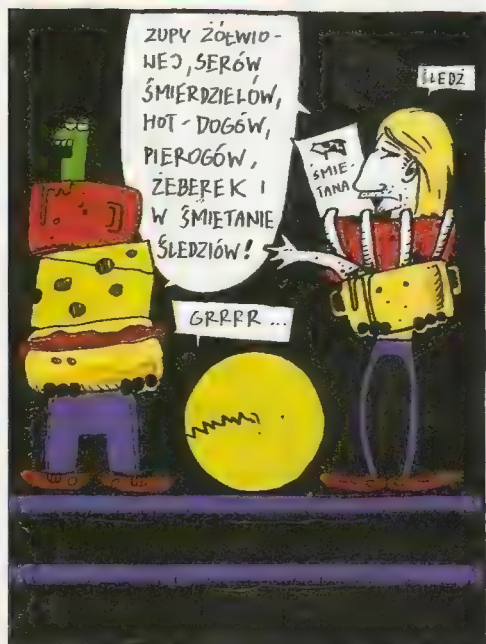 ZUPY ŻÓŁWIO-
WEJ, SERÓW
ŚMIERDZIELÓW,
HOT-DOGÓW,
PIEROGÓW,
ŻEBEREK I
W ŚMIETANIE
ŚLEDZIÓW!
ŚLEDŹ
ŚMIE-
TANA
GRRRR...